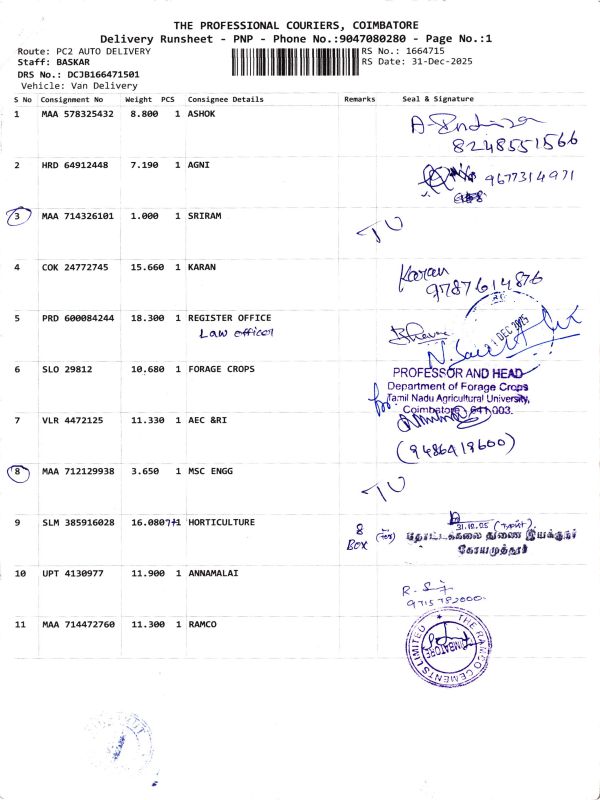 THE PROFESSIONAL COURIERS, COIMBATORE
Delivery Runsheet - PNP - Phone No.:9047080280 - Page No.:1
Route: PC2 AUTO DELIVERY
RS No.: 1664715
Staff: BASKAR
RS Date: 31-Dec-2025
DRS No.: DCJB166471501
Vehicle: Van Delivery
S No Consignment No Weight PCS Consignee Details Remarks Seal & Signature
1 MAA 578325432 8.800 1 ASHOK
8248551566
2 HRD 64912448 7.190 1 AGNI
9677314971
3 MAA 714326101 1.000 1 SRIRAM
TU
4 COK 24772745 15.660 1 KARAN Karan
9787614876
5 PRD 600084244 18.300 1 REGISTER OFFICE
Law officer
DEC 2025
6 SLO 29812 10.680 1 FORAGE CROPS
PROFESSOR AND HEAD
Department of Forage Crops
Tamil Nadu Agricultural University,
Coimbatore - 641 003.
for
7 VLR 4472125 11.330 1 AEC &RI
(9486419600)
8 MAA 712129938 3.650 1 MSC ENGG
TU
9 SLM 385916028 16.080 7+1 HORTICULTURE
8 Box
31.12.25
(for) தோட்டக்கலை துணை இயக்குநர்
கோயமுத்தூர்
10 UPT 4130977 11.900 1 ANNAMALAI
11 MAA 714472760 11.300 1 RAMCO
THE RAMCO CEMENTS LIMITED
COIMBATORE